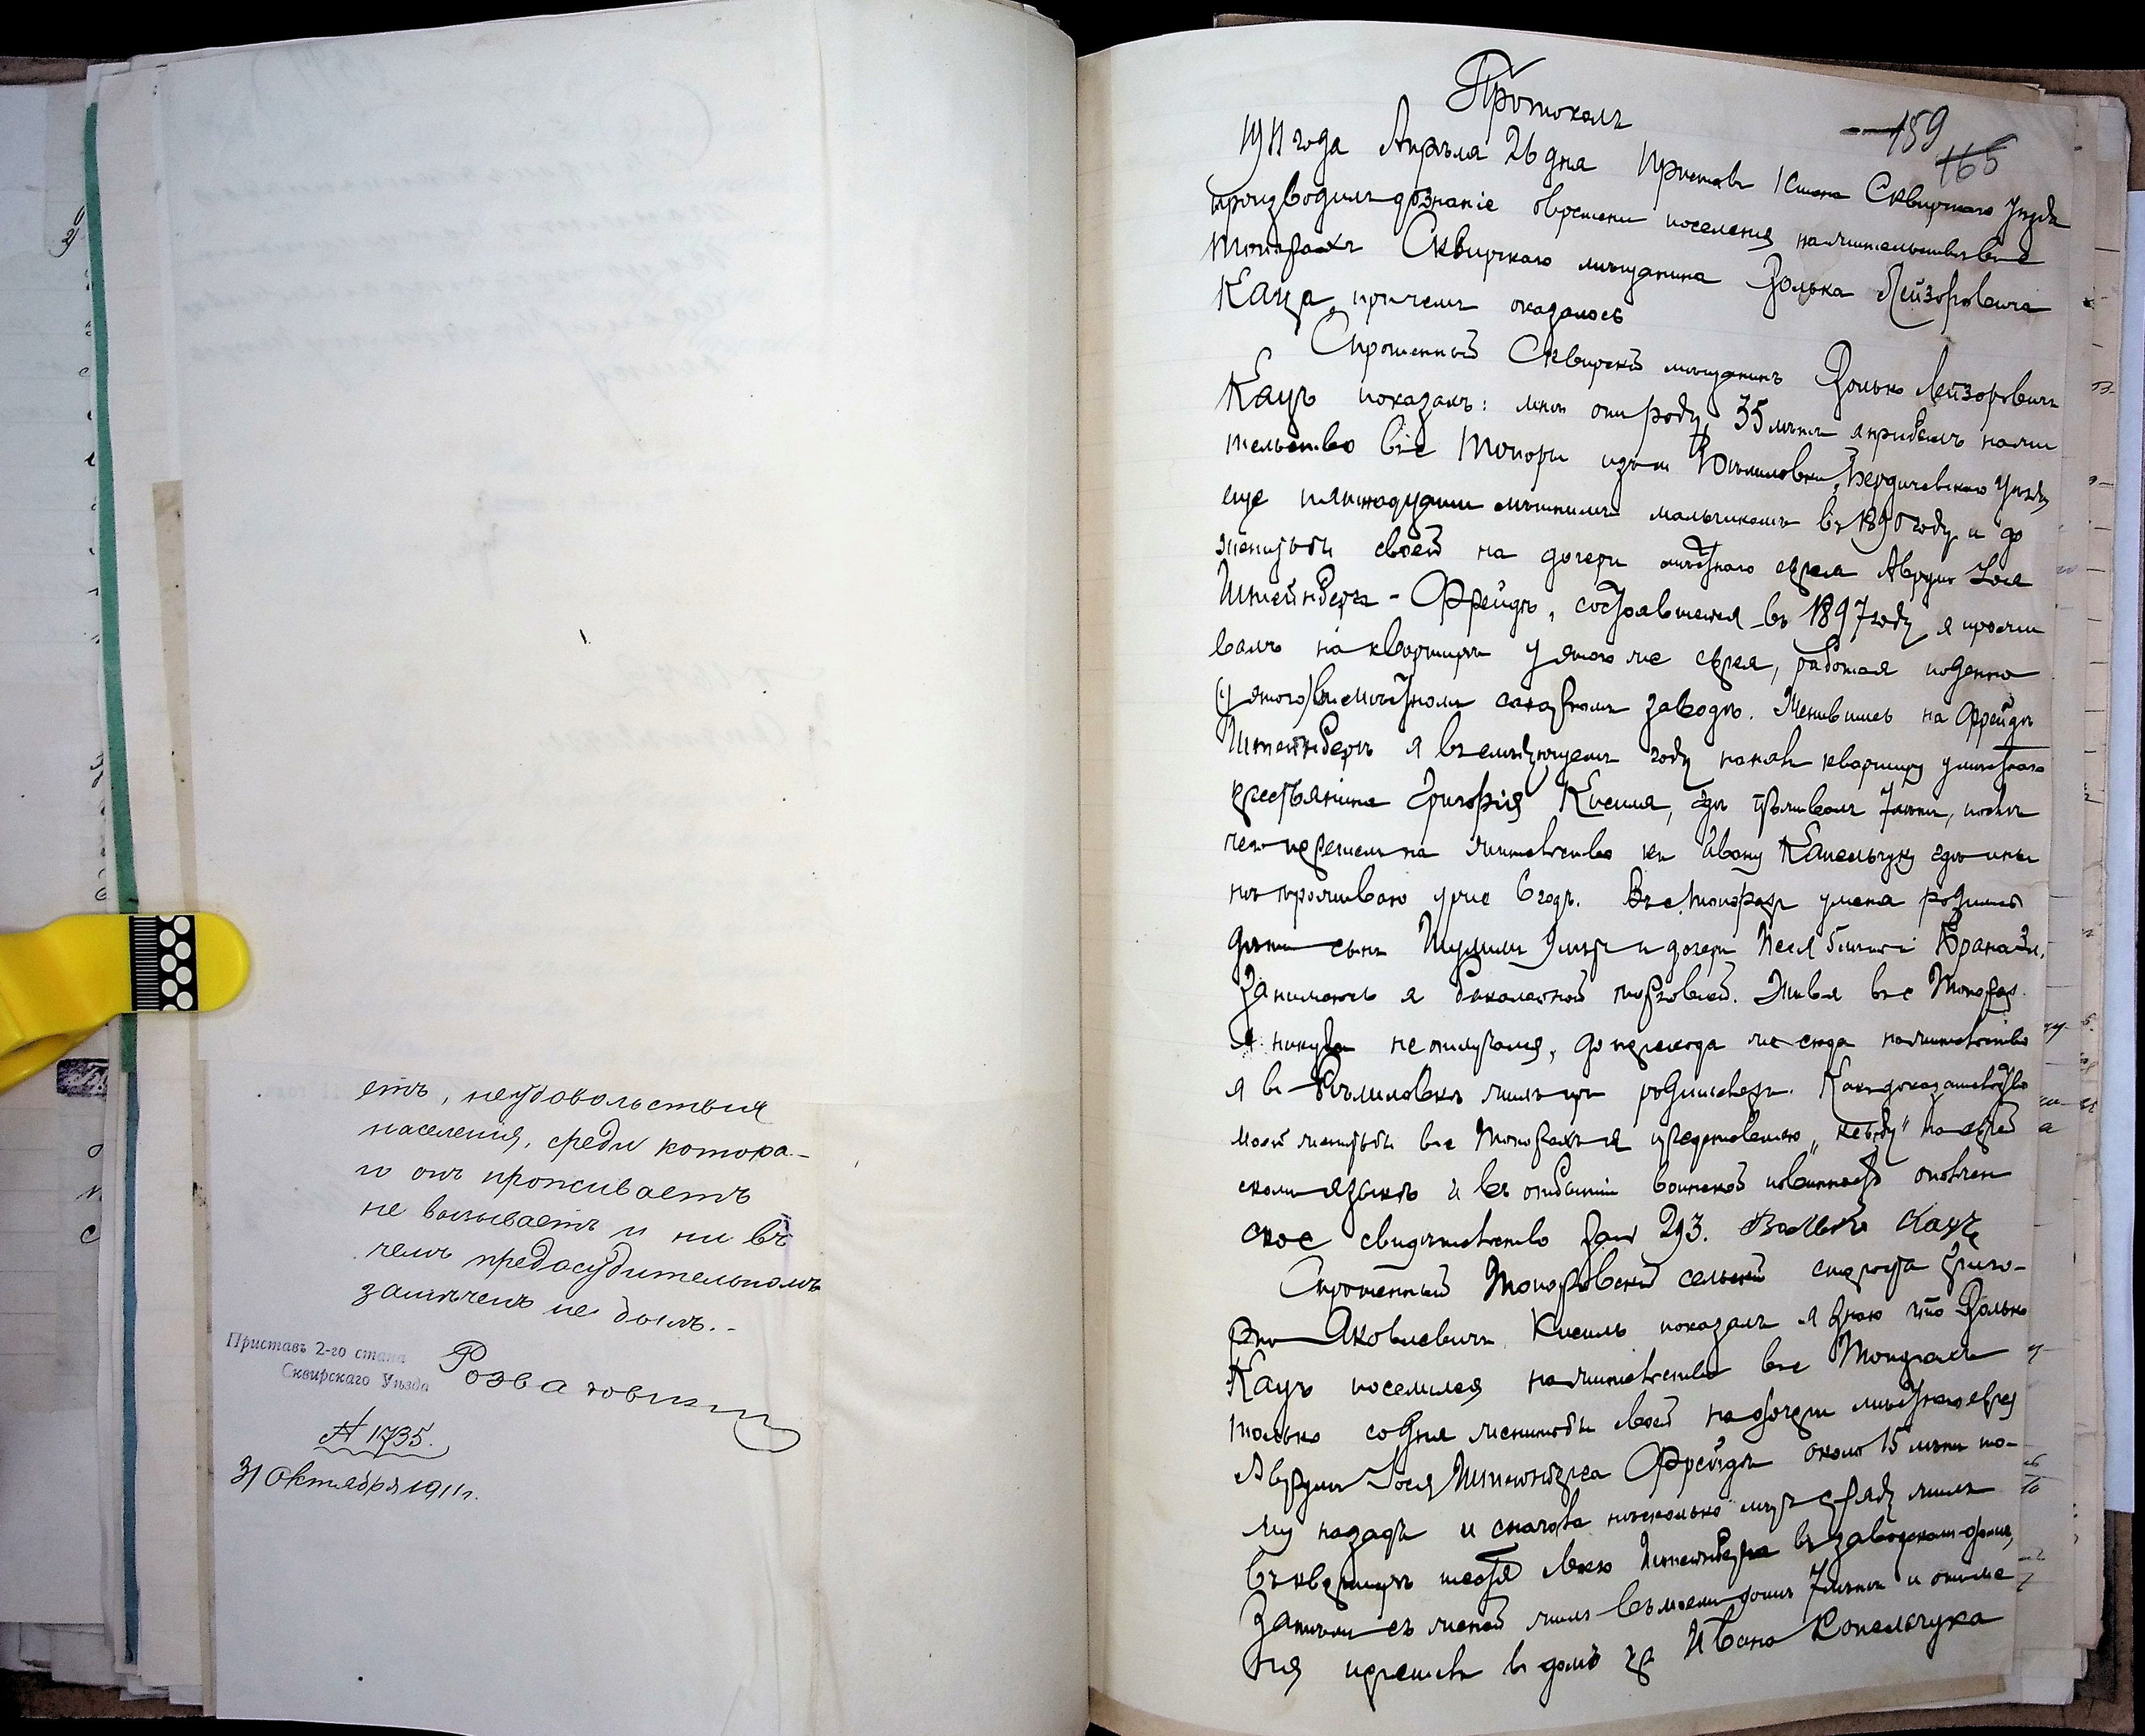 етъ, неудовольствия
населения, среди которо-
го онъ проживаетъ
не вызываетъ и ни въ
чемъ предосудительномъ
замѣченъ не былъ.-
Приставъ 2-го стана
Сквирскаго Уѣзда
№ 1735.
31 Октября 1911 г.
Протоколъ
159
165
1911 года Апрѣля 26 дня Приставъ 1 стана Сквирскаго Уѣзда
производилъ дознаніе о времени поселенія на жительство въ с
Топорахъ Сквирскаго мѣщанина Золька Лейзоровича
Каца, причемъ оказалось
Спрошенный Сквирскій мѣщанинъ Золько Лейзоровичъ
Кацъ показалъ: мнѣ отъ роду 35 лѣтъ я прибылъ на жи
тельство въ с Топоры изъ м Бѣлиловки, Бердичевскаго Уѣзда
еще пятнадцати лѣтнимъ мальчикомъ въ 1890 году и до
женитьбы своей на дочери мѣстнаго еврея Аврума Іося
Штейнберга - Фрейдѣ, состоявшейся въ 1897 году я прожи
валъ на квартирѣ у этого же еврея, работая поденно
(у этого) въ мѣстномъ сахарномъ заводѣ. Женившись на Фрейдѣ
Штейнбергъ я въ слѣдующемъ году нанялъ квартиру у мѣстнаго
крестьянина Григорія Кисиля, гдѣ проживалъ 7 лѣтъ, послѣ
чего перешелъ на жительство къ Ивану Капельчуку гдѣ и ны
нѣ проживаю уже 6 годъ. Въ с. Топорахъ у меня родились
дѣти сынъ и дочери
Занимаюсь я бакалейной торговлей. Живя въ с Топорахъ
я никуда не отлучался, до перехода же сюда на жительство
я въ Бѣлиловкѣ жилъ при родителяхъ. Какъ доказательство
моей женитьбы въ с Топорахъ я представляю на еврей
скомъ языкѣ и въ отбытіи воинской повинности ополчен
ское свидѣтельство за № 293. Кацъ
Спрошенный Топоровскій сельскій староста Григо-
рій Яковлевичъ Кисиль показалъ я знаю что Золько
Кацъ поселился на жительство въ с Топорахъ
только со дня женитьбы своей на дочери мѣстнаго еврея
Аврума Іося Штейнберга Фрейдѣ около 15 лѣтъ то-
му назадъ и сначала нѣсколько мѣсяцевъ жилъ
въ квартирѣ тестя своего Штейнберга въ заводскомъ домѣ,
Затѣмъ съ женой жилъ въ моемъ домѣ 7 лѣтъ и отъ ме
ня перешелъ въ домъ кр Ивана Копельчука